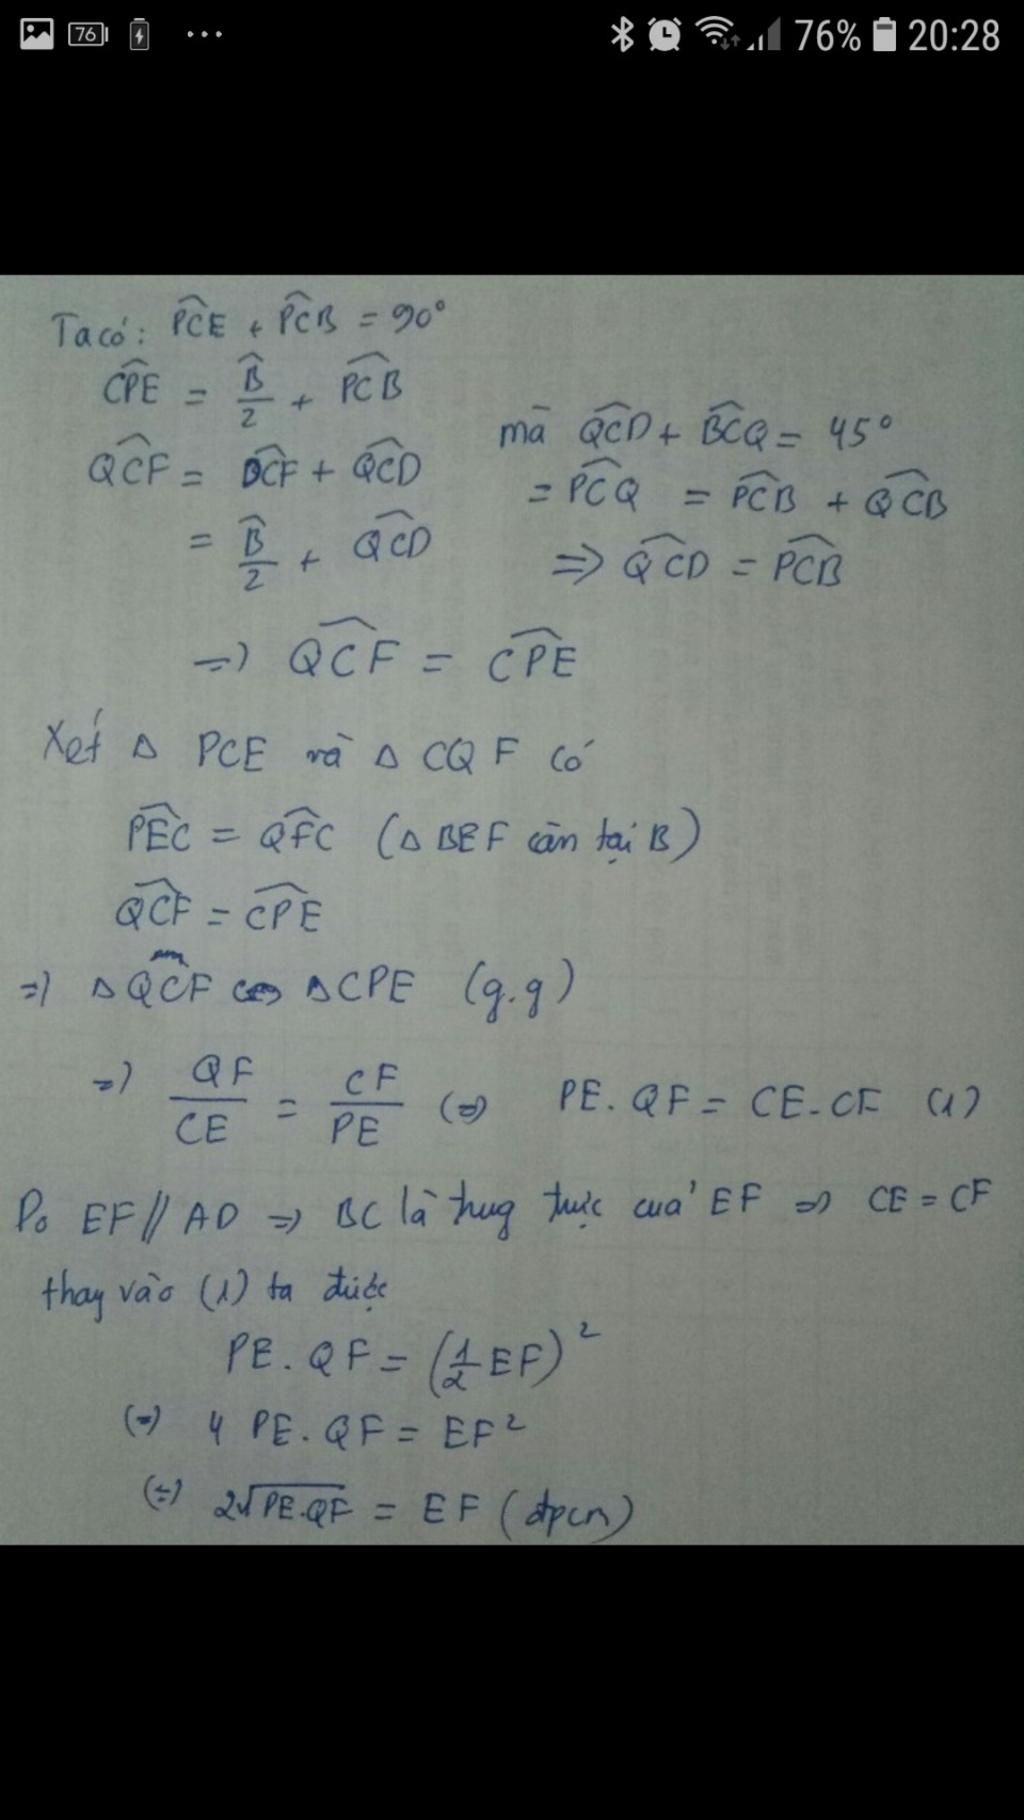 76
... 76% 20:28
Ta có: P̂CE + P̂CB = 90°
ĈPE = B̂/2 + P̂CB
mà Q̂CD + B̂CQ = 45°
Q̂CF = D̂CF + Q̂CD
= P̂CQ = P̂CB + Q̂CB
= B̂/2 + Q̂CD
=> Q̂CD = P̂CB
=> Q̂CF = ĈPE
Xét Δ PCE và Δ CQF có
P̂EC = Q̂FC (Δ BEF cân tại B)
Q̂CF = ĈPE
=> Δ QCF ∽ Δ CPE (g.g)
=> QF/CE = CF/PE (=) PE. QF = CE. CF (1)
Do EF // AD => BC là trung trực của EF => CE = CF
thay vào (1) ta được
PE. QF = (1/2 EF)²
(=) 4 PE. QF = EF²
(=) 2√PE.QF = EF (đpcm)